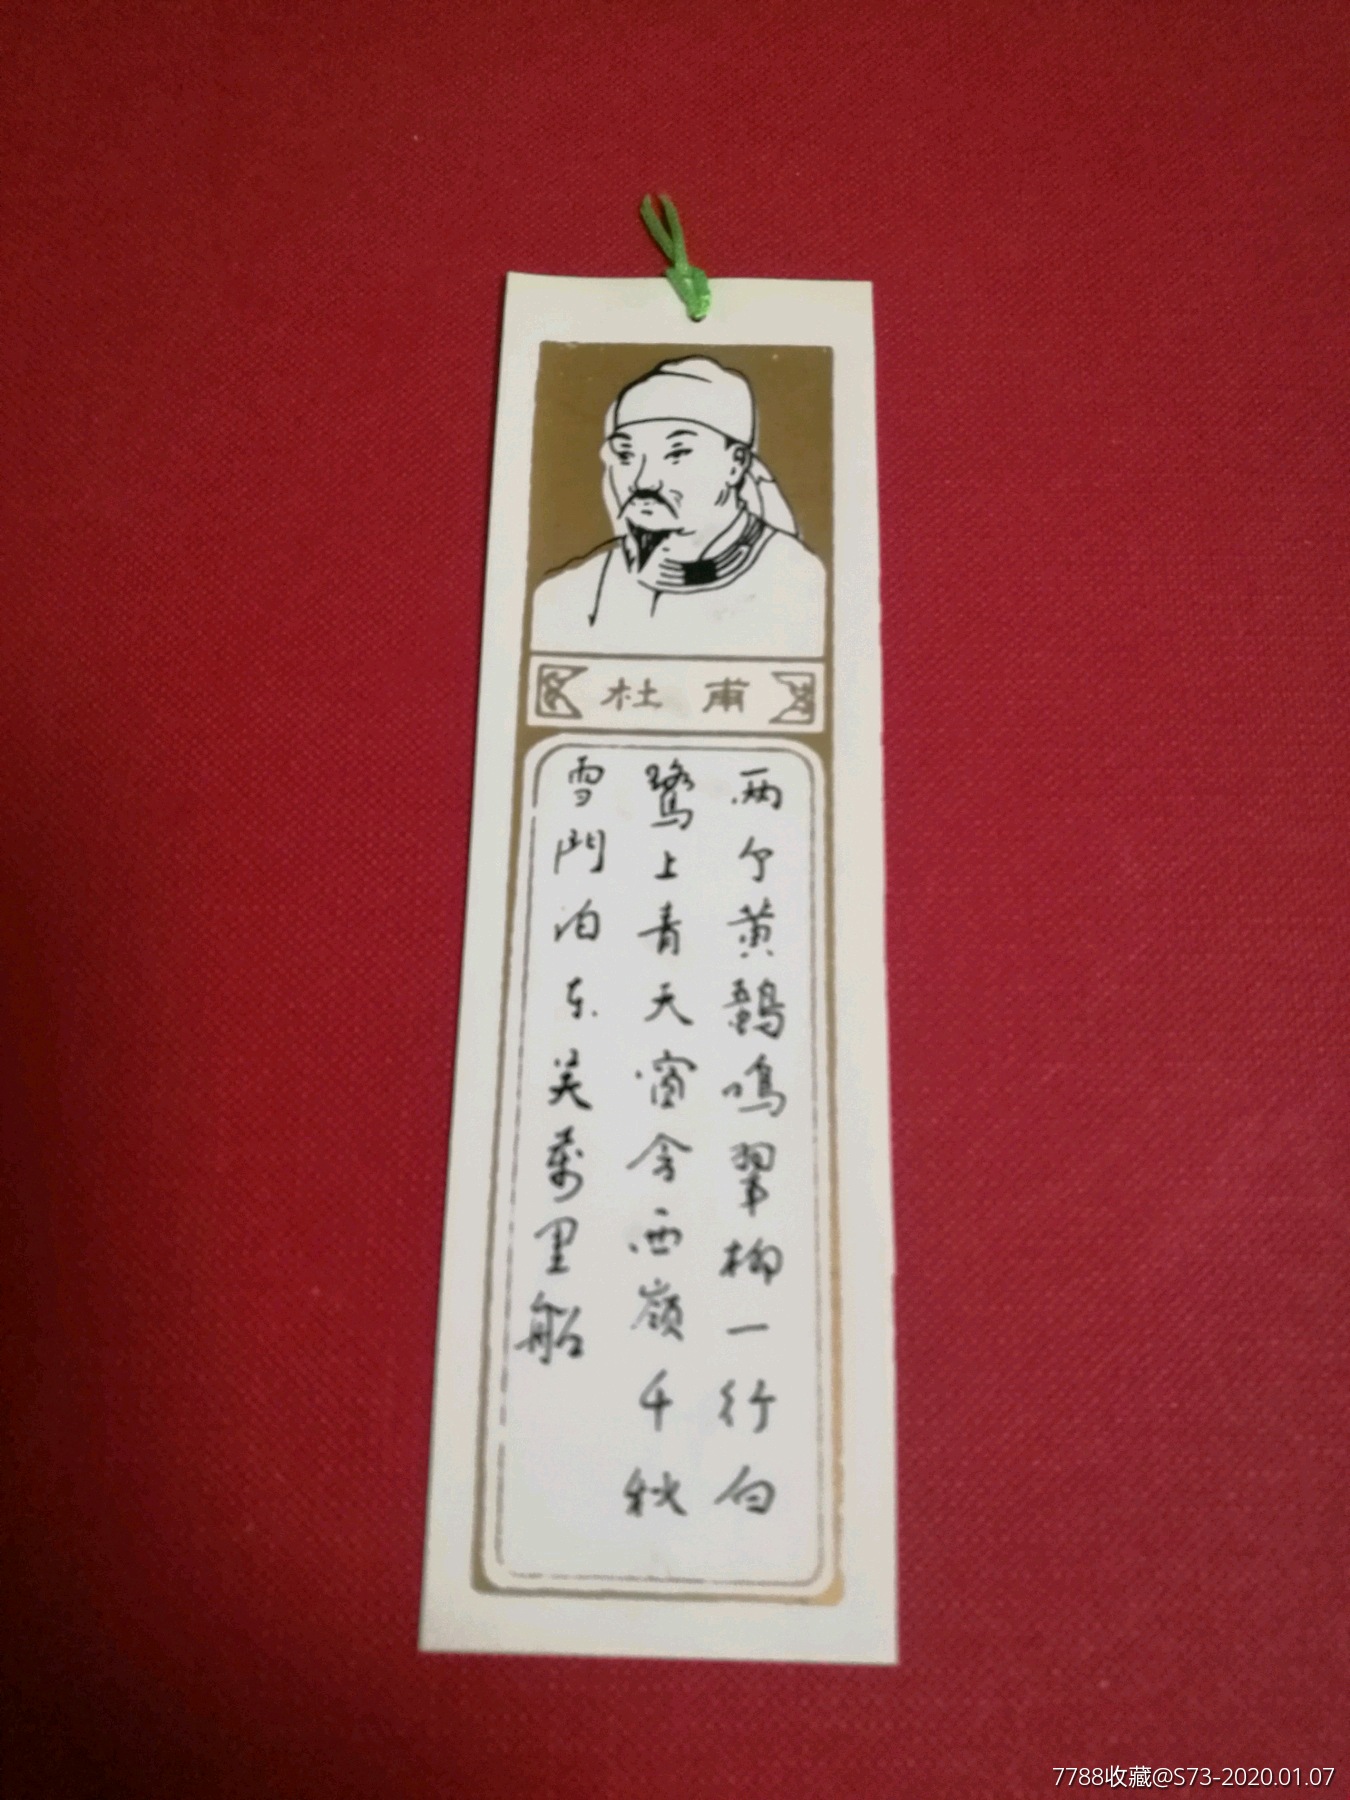 杜甫
两个黄鹂鸣翠柳一行白
鹭上青天窗含西嶺千秋
雪門泊东吴萬里船
7788收藏@S73-2020.01.07